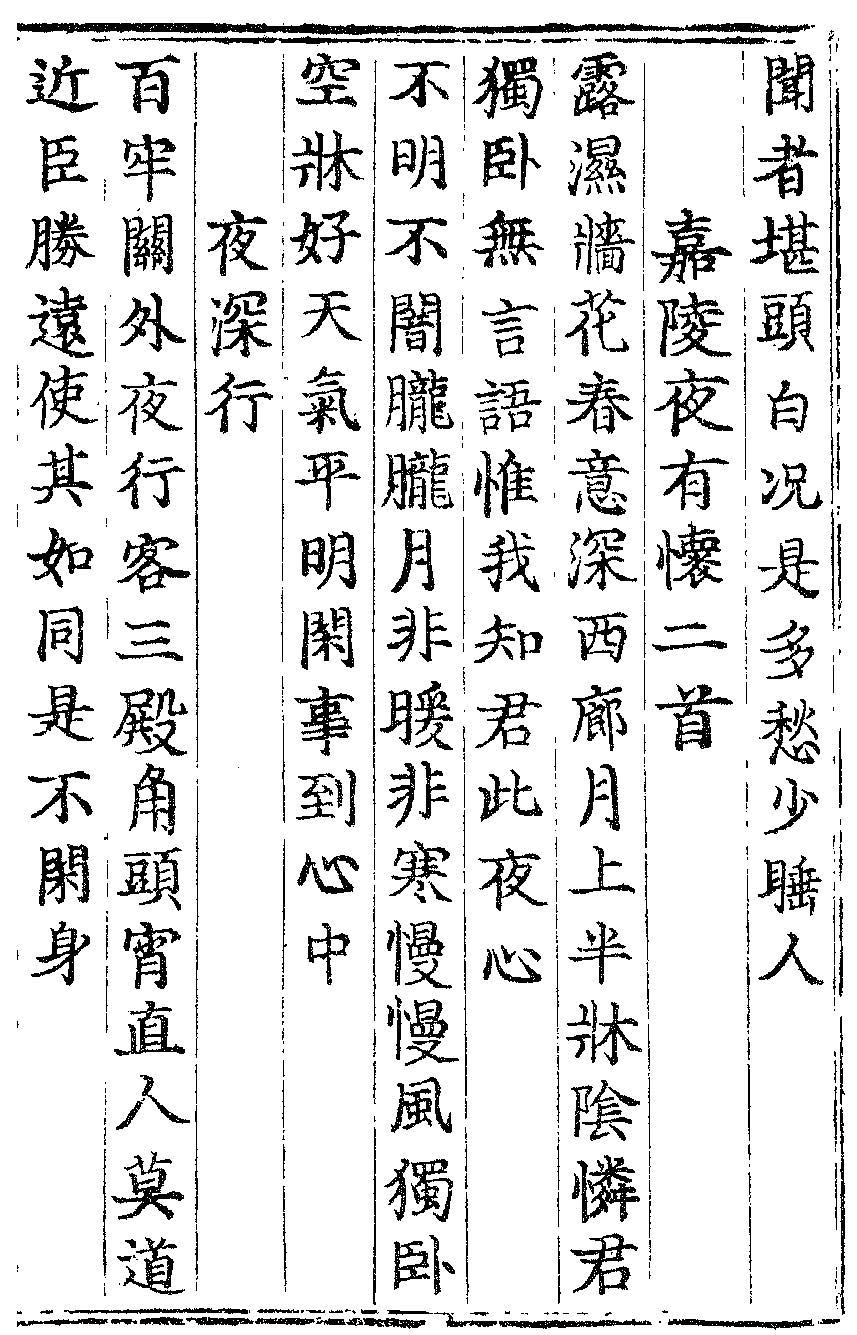 聞者堪頭白况是多愁少睡人
嘉陵夜有懷二首
露濕牆花春意深西廊月上半牀陰憐君
獨卧無言語惟我知君此夜心
不明不闇朧朧月非暖非寒慢慢風獨卧
空牀好天氣平明閑事到心中
夜深行
百牢關外夜行客三殿角頭宵直人莫道
近臣勝遠使其如同是不閑身